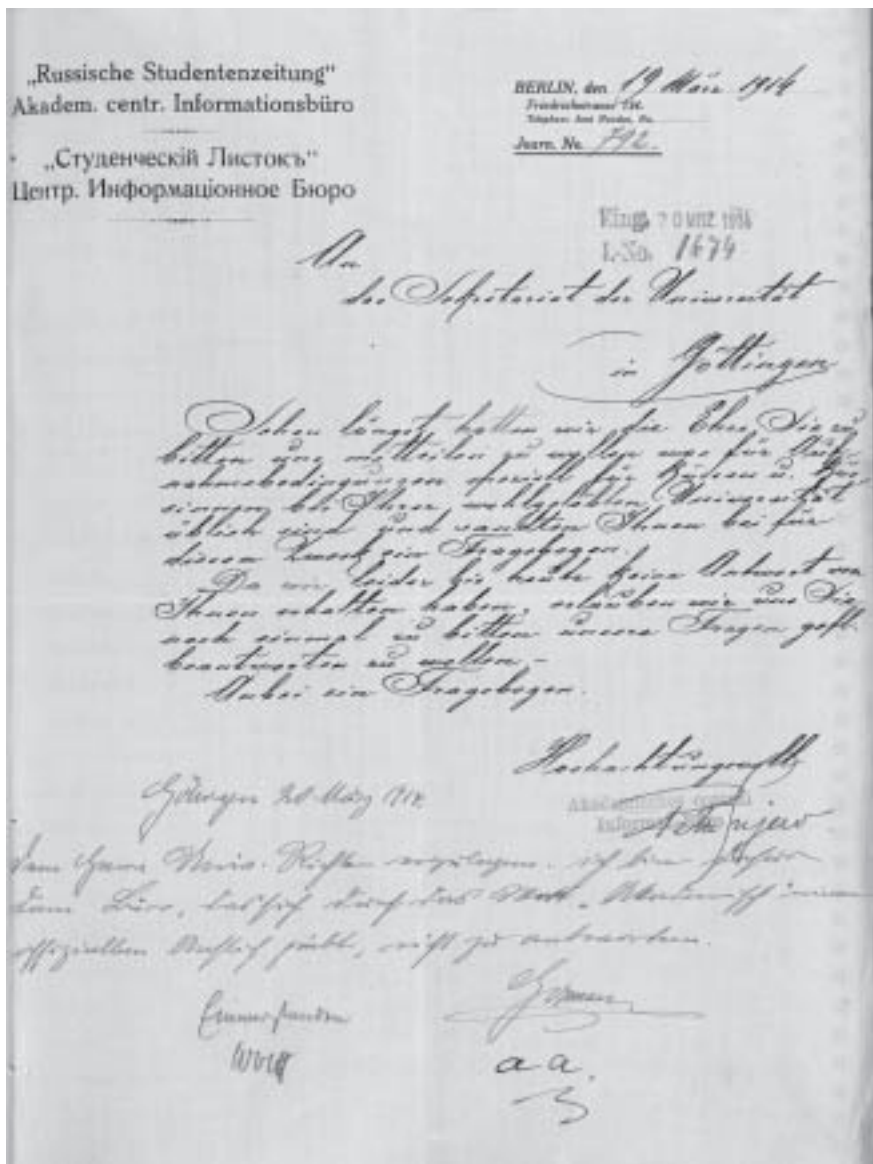 „Russische Studentenzeitung“
Akadem. centr. Informationsbüro
„Студенческій Листокъ“
Центр. Информаціонное Бюро
BERLIN, den 19 März 1914
Friedrichstrasse
Telephon: Amt Norden, No.
Journ. No. 792.
Eing. 20 MRZ 1914
I.-No. 1674
An
das Sekretariat der Universität
in Göttingen
Schon längst hatten wir die Ehre, Sie zu
bitten uns mitteilen zu wollen was für Auf-
nahmebedingungen speziell für Russen u. Rus-
sinnen bei Ihrer wohlgeblen Universität
üblich sind und sandten Ihnen bei für
diesen Zweck ein Fragebogen.
Da wir leider bis heute keine Antwort von
Ihnen erhalten haben, erlauben wir uns Sie
noch einmal zu bitten unsere Fragen gefl.
beantworten zu wollen.–
Anbei ein Fragebogen.
Hochachtungsvoll
Akademisches central
Informat
Göttingen 20. März 1914.
Dem Herrn Univ. Richter vorzulegen. ich bin
dem Büro, das sich durch das Wort „Akademisch“ einen
offiziellen Anstrich giebt, nicht zu antworten.
Einverstanden
a a.